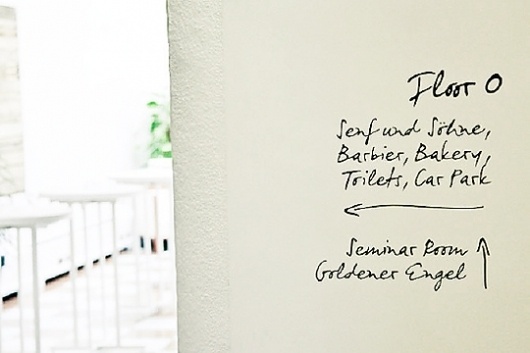 Floor 0
Senf und Söhne,
Barbier, Bakery,
Toilets, Car Park
Seminar Room
Goldener Engel